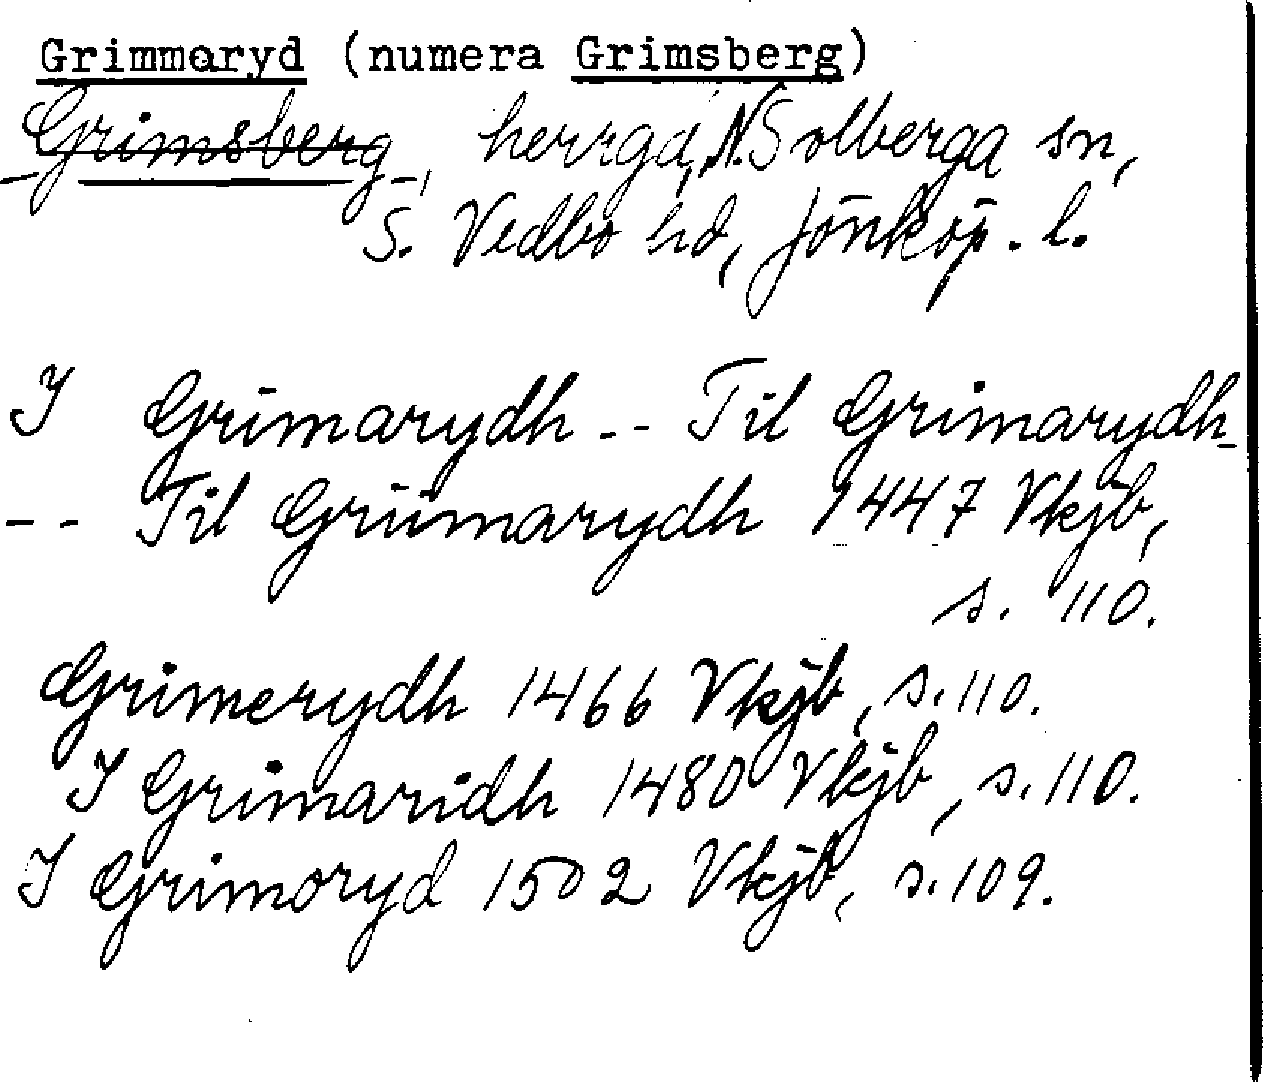 Grimmaryd (numera Grimsberg)
Grimsberg, herrgd, N. Solberga sn,
S. Vedbo hd, Jönköp. l.
I Grimarydh -- Til Grimarydh
-- Til Griimarydh 1447 Vkjb,
s. 110.
Grimerydh 1466 Vkjb, s. 110.
I Grimaridh 1480 Vkjb, s. 110.
I Grimoryd 1502 Vkjb, s. 109.